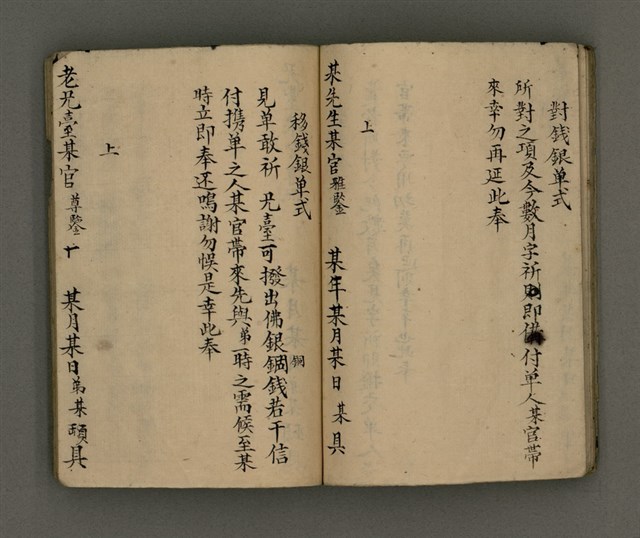 對錢銀单式
所對之項及今數月字祈即即備付单人某官帶
來幸勿再延此奉
上
某先生某官雅鑒 某年某月某日 某具
移錢銀单式
見单敢祈 兄臺可撥出佛銀錭銅錢若干信
付携单之人某官帶來先與弟一時之需候至某
時立即奉还鳴謝勿悞是幸此奉
上
老兄臺某官尊鑒 某月某日弟某頓具